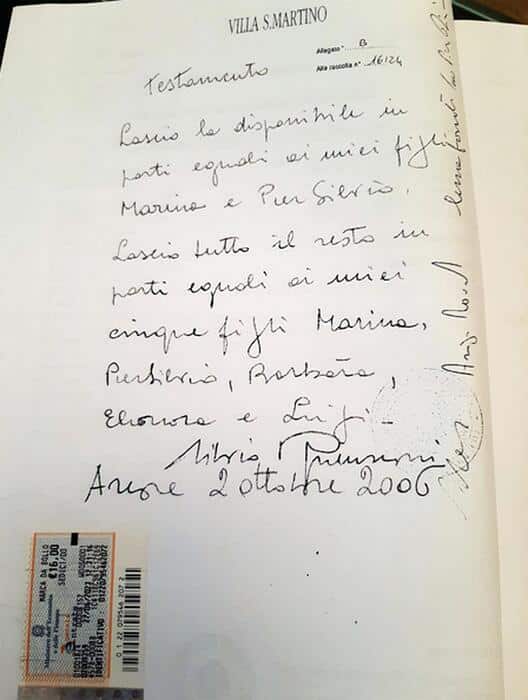 VILLA S.MARTINO
Allegato " B
Alla raccolta n° 16124
Testamento
Lascio la disponibile in
parti eguali ai miei figli
Marina e Pier Silvio.
Lascio tutto il resto in
parti eguali ai miei
cinque figli Marina,
PierSilvio, Barbara,
Eleonora e Luigi-
Silvio Berlusconi
Arcore 2 ottobre 2006
MARCA DA BOLLO
€16,00
SEDICI/00
Ministero dell'Economia
e delle Finanze
0 1 22 079546 207 2